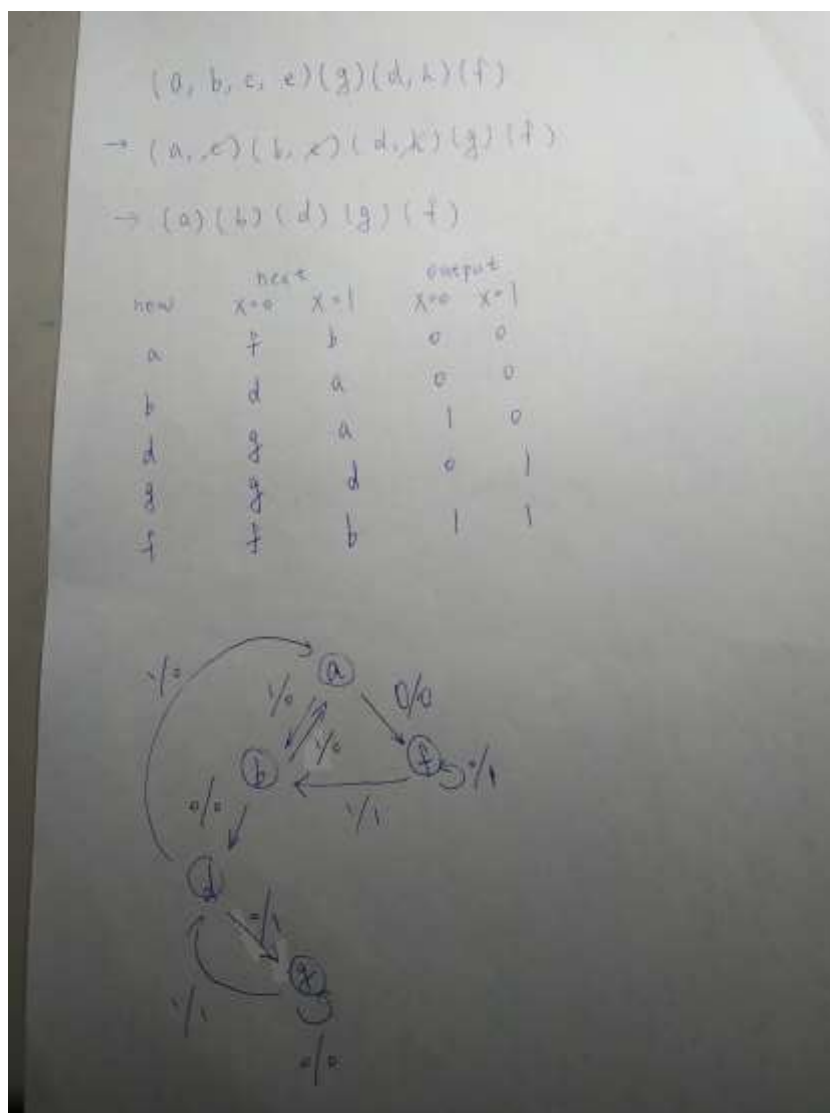 (a, b, c, e)(g)(d, h)(f)
→ (a, c)(b, e)(d, h)(g)(f)
→ (a)(b)(d)(g)(f)
next output
now x=0 x=1 x=0 x=1
a f b 0 0
b d a 0 0
d g a 1 0
g g d 0 1
f f b 1 1
1/0
a
1/0
0/0
1/0
b
f
0/1
0/0
1/1
d
0/1
g
1/1
0/0